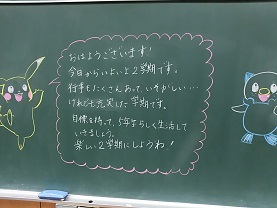 おはようございます!
今日からいよいよ2学期です。
行事もたくさんあって、いそがしい…
けれども充実した学期です。
目標を持って、5年生らしく生活して
いきましょう。
楽しい2学期にしようね!